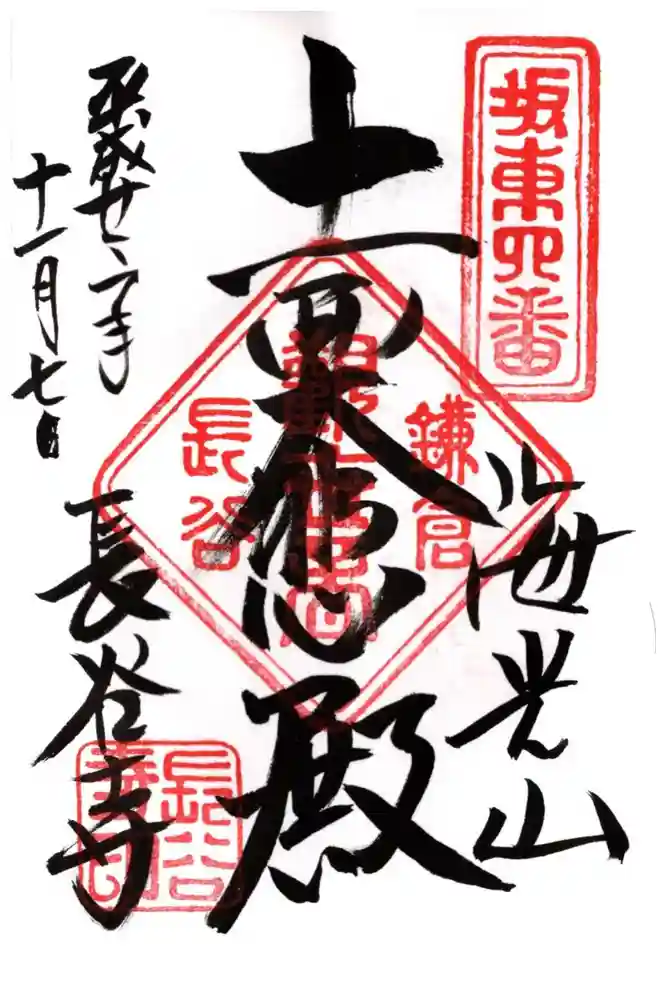 坂東四番
海光山
十一面大悲殿
鎌倉
長谷
長谷寺
平成廿六年
十一月七日
長谷